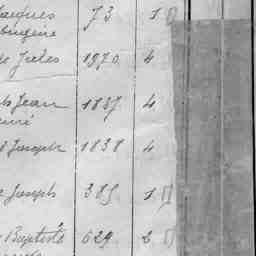 Jacques 73 1
Eugène
de Jules 1870 4
Jean 1887 4
René
Joseph 1838 4
Joseph 385 1
Baptiste 629 2